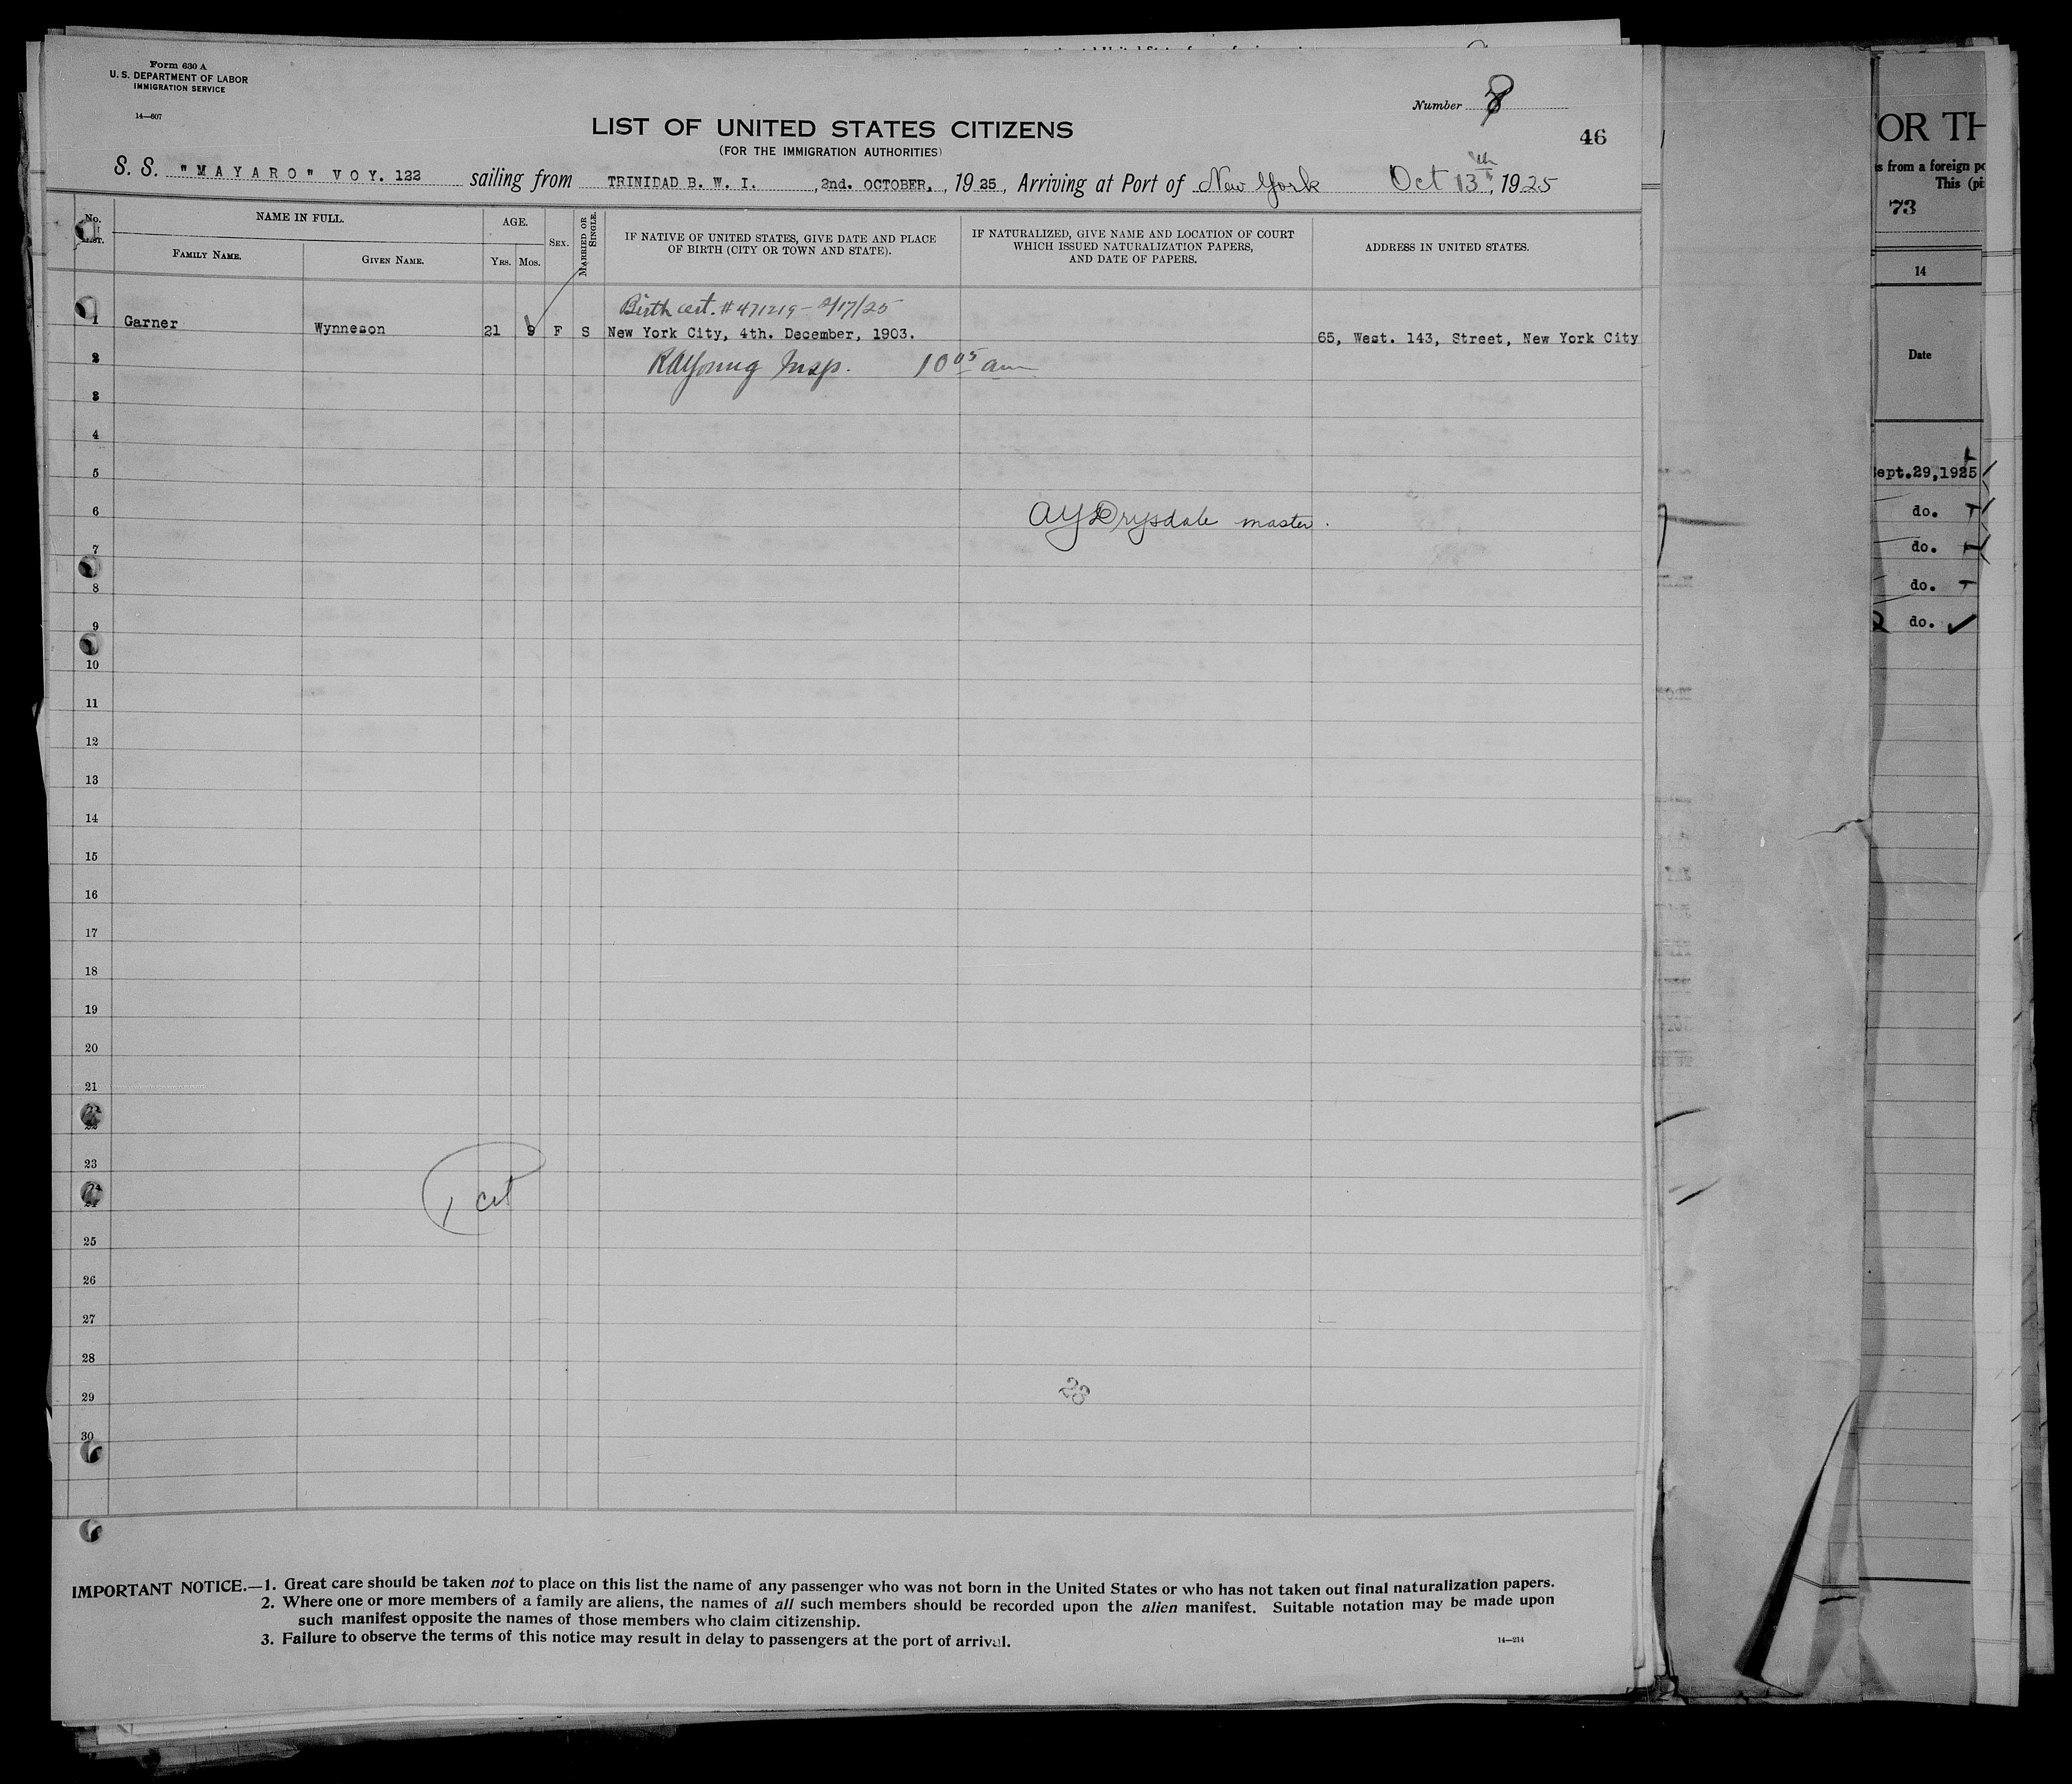 Form 630 A
U. S. DEPARTMENT OF LABOR
IMMIGRATION SERVICE
14—607
Number 8
LIST OF UNITED STATES CITIZENS
46
(FOR THE IMMIGRATION AUTHORITIES)
S. S. "MAYARO" VOY. 122 sailing from TRINIDAD B. W. I., 2nd. OCTOBER, 1925, Arriving at Port of New York Oct 13th, 1925
No. LIST. NAME IN FULL. AGE. SEX. MARRIED OR SINGLE. IF NATIVE OF UNITED STATES, GIVE DATE AND PLACE OF BIRTH (CITY OR TOWN AND STATE). IF NATURALIZED, GIVE NAME AND LOCATION OF COURT WHICH ISSUED NATURALIZATION PAPERS, AND DATE OF PAPERS. ADDRESS IN UNITED STATES.
FAMILY NAME. GIVEN NAME. YRS. MOS.
Birth cert. # 471219 - 2/17/25
1 Garner Wynneson 21 9 F S New York City, 4th. December, 1903. 65, West. 143, Street, New York City
2 RAYoung Insp. 10 05 am
3
4
5
6 AY Drysdale master.
7
8
9
10
11
12
13
14
15
16
17
18
19
20
21
22
23
24
1 cit
25
26
27
28
29
23
30
IMPORTANT NOTICE.—1. Great care should be taken not to place on this list the name of any passenger who was not born in the United States or who has not taken out final naturalization papers.
2. Where one or more members of a family are aliens, the names of all such members should be recorded upon the alien manifest. Suitable notation may be made upon
such manifest opposite the names of those members who claim citizenship.
3. Failure to observe the terms of this notice may result in delay to passengers at the port of arrival.
14—214
OR TH
s from a foreign po
This (pi
73
14
Date
Sept.29,1925
do.
do.
do.
do.